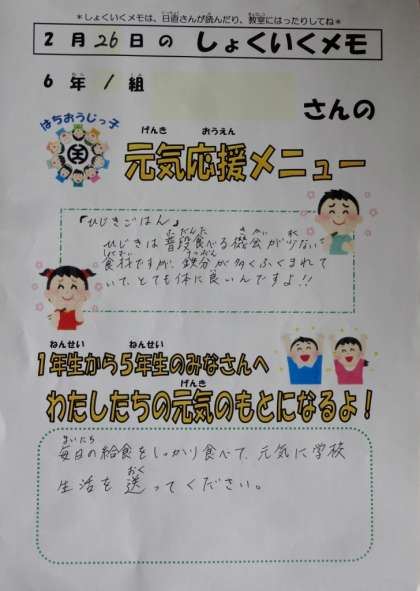 ＊しょくいくメモは、日直さんが読んだり、教室にはったりしてね＊
2月26日の しょくいくメモ
6年1組
さんの
はちおうじっ子
元気応援メニュー
「ひじきごはん」
ひじきは普段食べる機会が少ない
食材ですが、鉄分が多くふくまれて
いて、とても体に良いんですよ!!
1年生から5年生のみなさんへ
わたしたちの元気のもとになるよ！
毎日の給食をしっかり食べて、元気に学校
生活を送ってください。